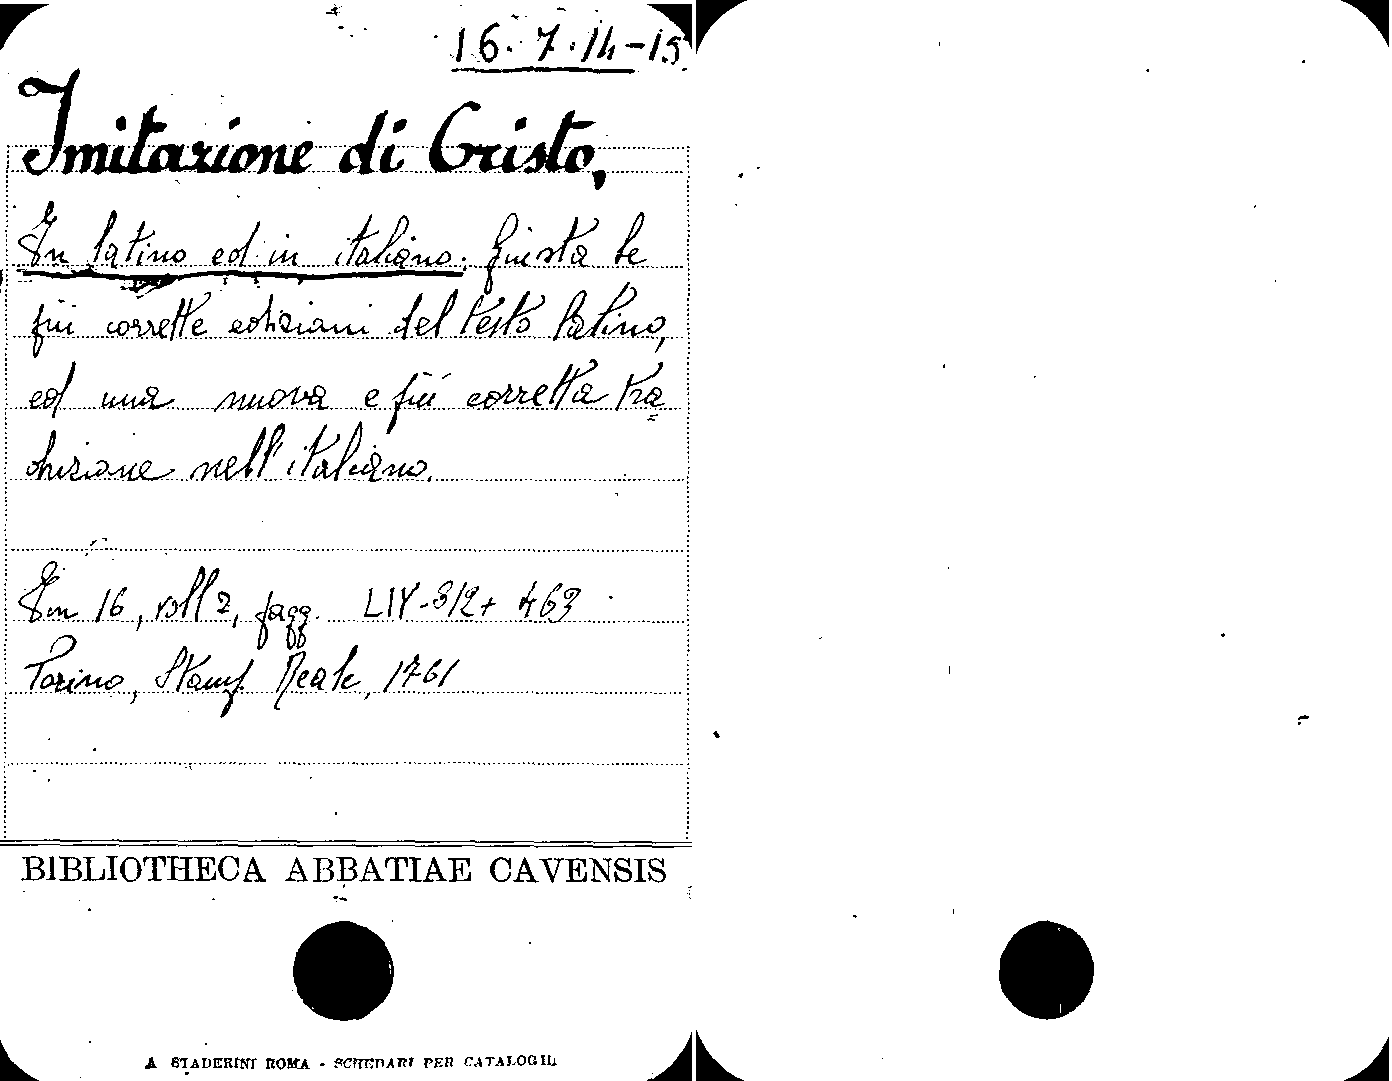 16.7.14-15
Imitazione di Cristo,
In latino ed in italiano. Giusta le
più corrette edizioni del testo latino,
ed una nuova e più corretta tra
duzione nell'italiano.
In 16, voll 2, pagg. LIV-312+ 463
Torino, Stamp. Reale, 1761
BIBLIOTHECA ABBATIAE CAVENSIS
A STADERINI ROMA - SCHEDARI PER CATALOGHI